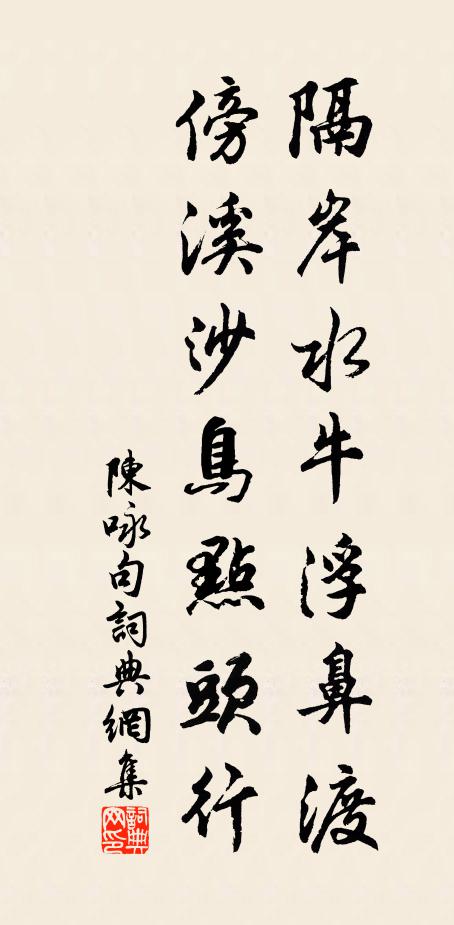 隔岸水牛浮鼻渡
傍溪沙鳥點頭行
陳咏句詞典網集
詞典
网印